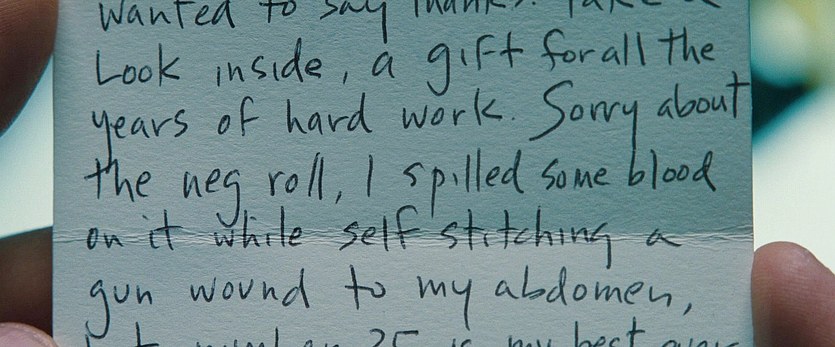 wanted to say thanks. Take a
Look inside, a gift for all the
years of hard work. Sorry about
the neg roll, I spilled some blood
on it while self stitching a
gun wound to my abdomen,
but number 25 is my best ever